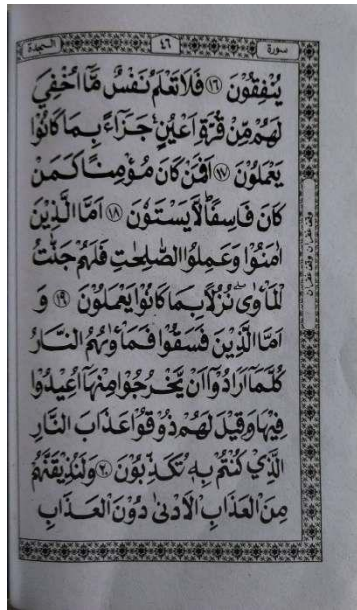 سورة ٤٦ السجدة
يُنْفِقُوْنَ ⑯ فَلَا تَعْلَمُ نَفْسٌ مَّاۤ اُخْفِيَ
لَهُمْ مِّنْ قُرَّةِ اَعْيُنٍ ۚ جَزَآءًۢ بِمَا كَانُوْا
يَعْمَلُوْنَ ⑰ اَفَمَنْ كَانَ مُؤْمِنًا كَمَنْ
كَانَ فَاسِقًا ؕ لَا يَسْتَوٗنَ ⑱ اَمَّا الَّذِيْنَ
اٰمَنُوْا وَعَمِلُوا الصّٰلِحٰتِ فَلَهُمْ جَنّٰتُ
الْمَاْوٰى ۫ نُزُلًاۢ بِمَا كَانُوْا يَعْمَلُوْنَ ⑲ وَ
اَمَّا الَّذِيْنَ فَسَقُوْا فَمَاْوٰىهُمُ النَّارُ
كُلَّمَاۤ اَرَادُوْۤا اَنْ يَّخْرُجُوْا مِنْهَاۤ اُعِيْدُوْا
فِيْهَا وَقِيْلَ لَهُمْ ذُوْقُوْا عَذَابَ النَّارِ
الَّذِيْ كُنْتُمْ بِهٖ تُكَذِّبُوْنَ ⑳ وَلَنُذِيْقَنَّهُمْ
مِّنَ الْعَذَابِ الْاَدْنٰى دُوْنَ الْعَذَابِ